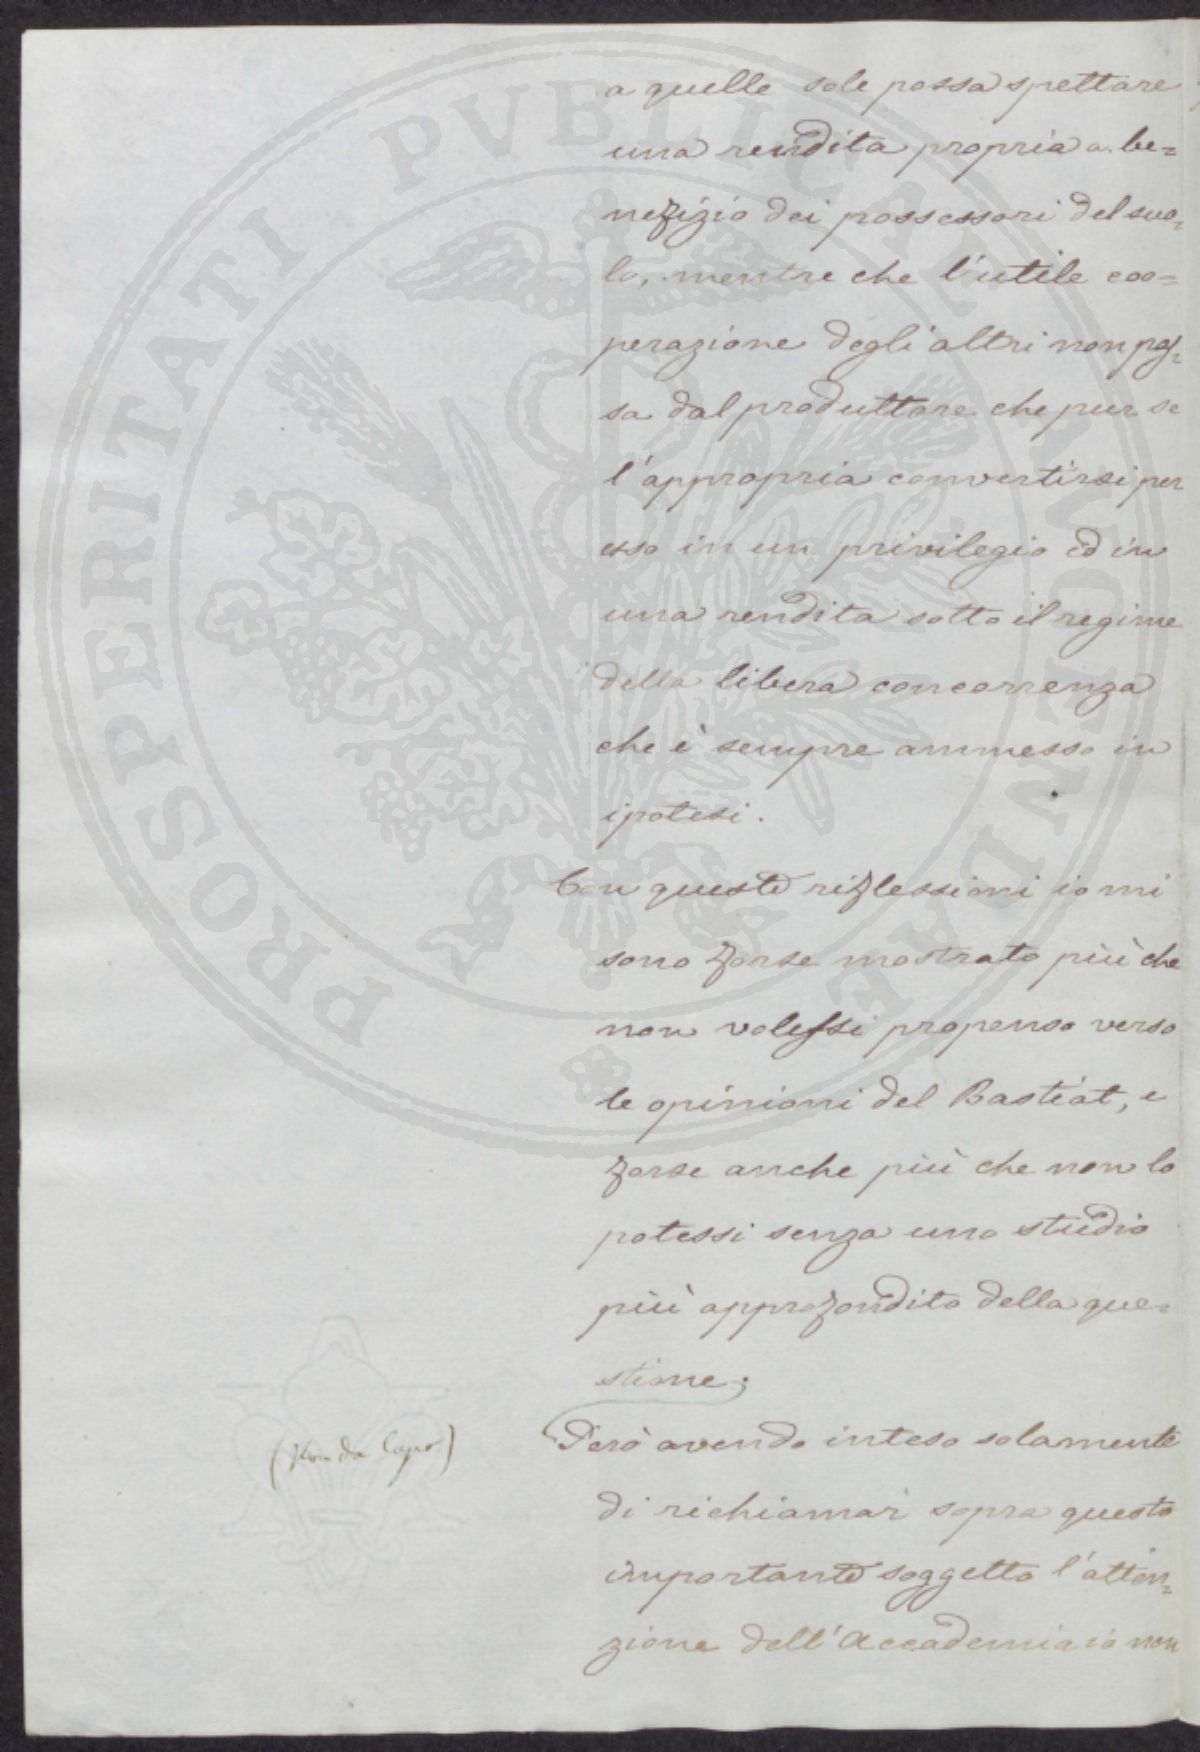 a quelle sole possa spettare
una rendita propria a be=
nefizio dei possessori del suo=
lo, mentre che l'utile coo=
perazione degli altri non pos=
sa dal produttore che pur se
l'appropria convertirsi per
esso in un privilegio ed in
una rendita sotto il regime
della libera concorrenza
che è sempre ammesso in
ipotesi.
Con queste riflessioni io mi
sono forse mostrato più che
non volessi propenso verso
le opinioni del Bastiat, e
forse anche più che non lo
potessi senza uno studio
più approfondito della que=
stione;
(Non da Capo)
Però avendo inteso solamente
di richiamar sopra questo
importante soggetto l'atten=
zione dell'Accademia io non
PROSPERITATI PVBLICAE AVGENDAE